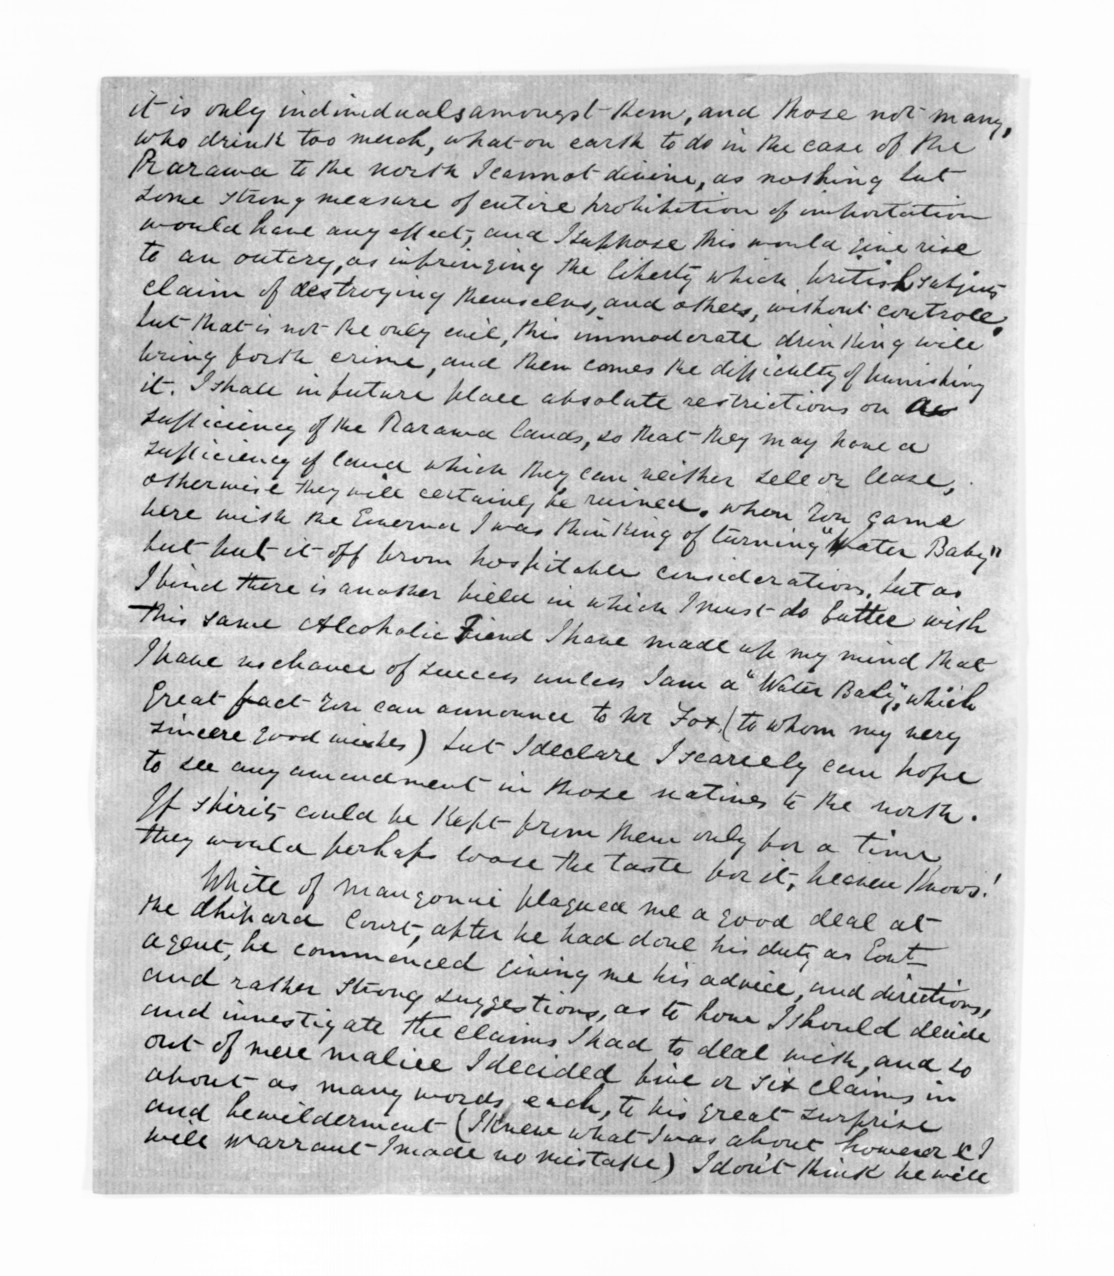 it is only individuals amongst them, and those not many,
who drink too much, what on earth to do in the case of the
Rarawa to the north I cannot divine, as nothing but
some strong measure of entire prohibition of importation
would have any effect, and I suppose this would give rise
to an outcry, as infringing the liberty which British subjects
claim of destroying themselves, and others, without controll,
but that is not the only evil, this immoderate drinking will
bring forth crime, and then comes the difficulty of punishing
it. I shall in future place absolute restrictions on a
sufficiency of the Rarawa lands, so that they may have a
sufficiency of land which they can neither sell or lease,
otherwise they will certainly be ruined. When you came
here with the Governor I was thinking of turning "Water Baby"
but put it off from hospitable consideration, but as
I find there is another field in which I must do battle with
this same Alcoholic Fiend I have made up my mind that
I have no chance of success unless I am a "Water Baby", which
great fact you can announce to Mr Fox (to whom my very
sincere good wishes) but I declare I scarcely can hope
to see any amendment in those natives to the north.
If spirits could be kept from them only for a time
they would perhaps loose the taste for it, heaven knows!
White of Mangonui plagued me a good deal at
the Ahipara Court, after he had done his duty as Govt
agent, he commenced giving me his advice, and directions,
and rather strong suggestions, as to how I should decide
and investigate the claims I had to deal with, and so
out of mere malice I decided five or six claims in
about as many words each, to his great surprise
and bewilderment (I knew what I was about however & I
will warrant I made no mistake) I don't think he will